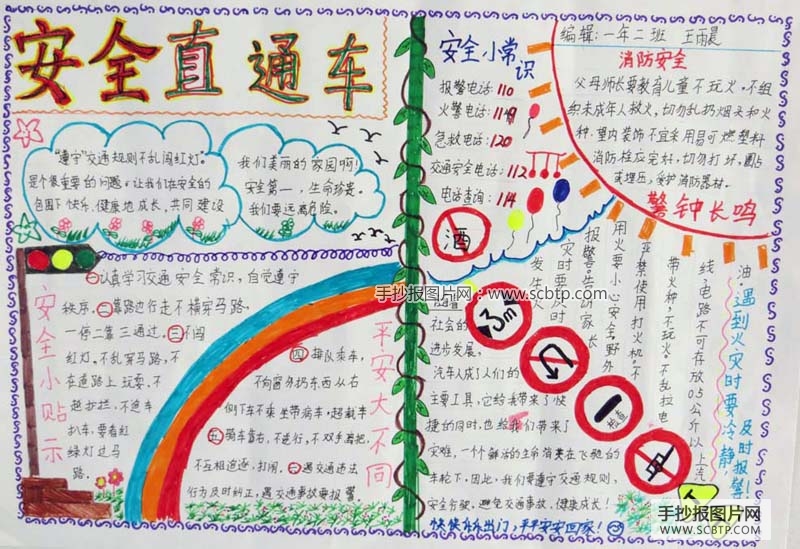 安全直通车
"遵守"交通规则不乱闯红灯。
是个很重要的问题。让我们在安全的
包围下快乐、健康地成长,共同建设
我们美丽的家园啊!
安全第一,生命珍贵。
我们要远离危险。
安全小贴示
㊀认真学习交通安全常识,自觉遵守
秩序。㊁靠路边行走不横穿马路,
一停二靠三通过。㊂不闯
红灯,不乱穿马路,不
在道路上玩耍,不
越护拦,不追车
扒车,要看红
绿灯过马
路。
㊃排队乘车,
不向窗外扔东西从右
侧下车不乘坐带病车,超载车
㊄骑车靠右,不逆行,不双手离把,
不互相追逐,打闹。㊅遇交通违法
行为及时纠正,遇交通事故要报警。
平安大不同
安全小常识
报警电话:110
火警电话:119
急救电话:120
交通安全电话:112
电话查询:114
酒
编辑:一年二班 王雨晨
消防安全
父母师长要教育儿童不玩火。不组
织未成年人救火,切勿乱扔烟头和火
种,室内装饰不宜采用易可燃塑料
消防栓应完好,切勿打坏、圈占
或埋压,爱护消防器材。
警钟长鸣
发生火
灾时要及时
报警。告诉家长
用火要小心安全,野外
严禁使用打火机。不
带火种,不玩火。不乱拉电
线,电路不可存放0.5公斤以上汽
油。
遇到火灾时要冷静,
及时报警!
3m
检查
社会的
进步发展,
汽车人成了人们的
主要工具,它给我带来了快
捷的同时,也给我们带来了
灾难,一个鲜活的生命消费在飞驰的
车轮下,因此,我们要遵守交通规则,
安全行驶,避免交通事故,健康成长!
快快乐乐出门,平平安安回家!
手抄报图片网:www.scbtp.com
手抄报图片网
www.scbtp.com